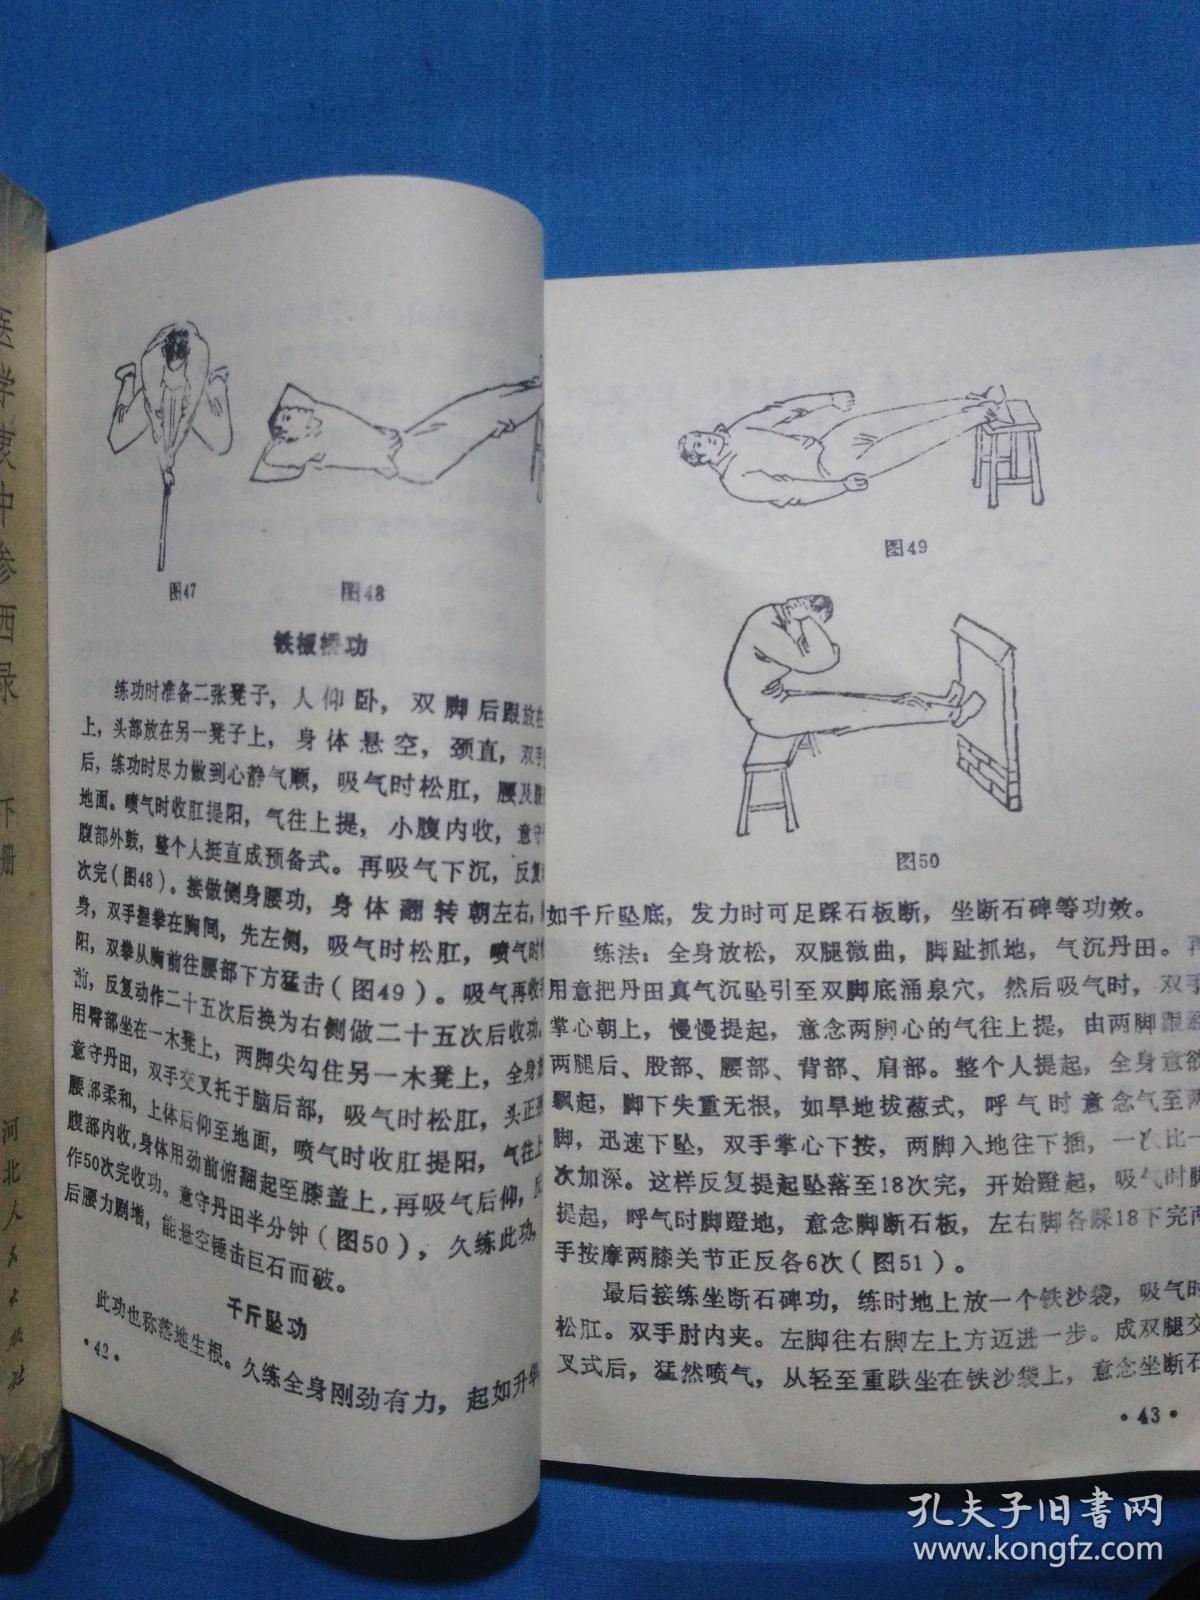 医学衷中参西录
下册
河北人民出版社
图47
图48
铁板桥功
练功时准备二张凳子，人仰卧，双脚后跟放在
上，头部放在另一凳子上，身体悬空，颈直，双手
后，练功时尽力做到心静气顺，吸气时松肛，腰及腹
地面。喷气时收肛提阳，气往上提，小腹内收，意守
腹部外鼓，整个人挺直成预备式。再吸气下沉，反复
次完（图48）。接做侧身腰功，身体翻转朝左右，
身，双手握拳在胸间，先左侧，吸气时松肛，喷气时
阳，双拳从胸前往腰部下方猛击（图49）。吸气再收
前，反复动作二十五次后换为右侧做二十五次后收功。
用臀部坐在一木凳上，两脚尖勾住另一木凳上，全身
意守丹田，双手交叉托于脑后部，吸气时松肛，头正
腰部柔和，上体后仰至地面，喷气时收肛提阳，气往上
腹部内收，身体用劲前俯翻起至膝盖上，再吸气后仰，
作50次完收功。意守丹田半分钟（图50），久练此功，
后腰力剧增，能悬空锤击巨石而破。
千斤坠功
此功也称落地生根。久练全身刚劲有力，起如升华
·42·
图49
图50
如千斤坠底，发力时可足踩石板断，坐断石碑等功效。
练法：全身放松，双腿微曲，脚趾抓地，气沉丹田。再
用意把丹田真气沉坠引至双脚底涌泉穴，然后吸气时，双手
掌心朝上，慢慢提起，意念两脚心的气往上提，由两脚跟经
两腿后、股部、腰部、背部、肩部。整个人提起，全身意欲
飘起，脚下失重无根，如旱地拔葱式，呼气时意念气至两
脚，迅速下坠，双手掌心下按，两脚入地往下插，一次比一
次加深。这样反复提起坠落至18次完，开始蹬起，吸气时脚
提起，呼气时脚蹬地，意念脚断石板，左右脚各踩18下完两
手按摩两膝关节正反各6次（图51）。
最后接练坐断石碑功，练时地上放一个铁沙袋，吸气时
松肛。双手肘内夹。左脚往右脚左上方迈进一步。成双腿交
叉式后，猛然喷气，从轻至重跌坐在铁沙袋上，意念坐断石
·43·
孔夫子旧书网
www.kongfz.com